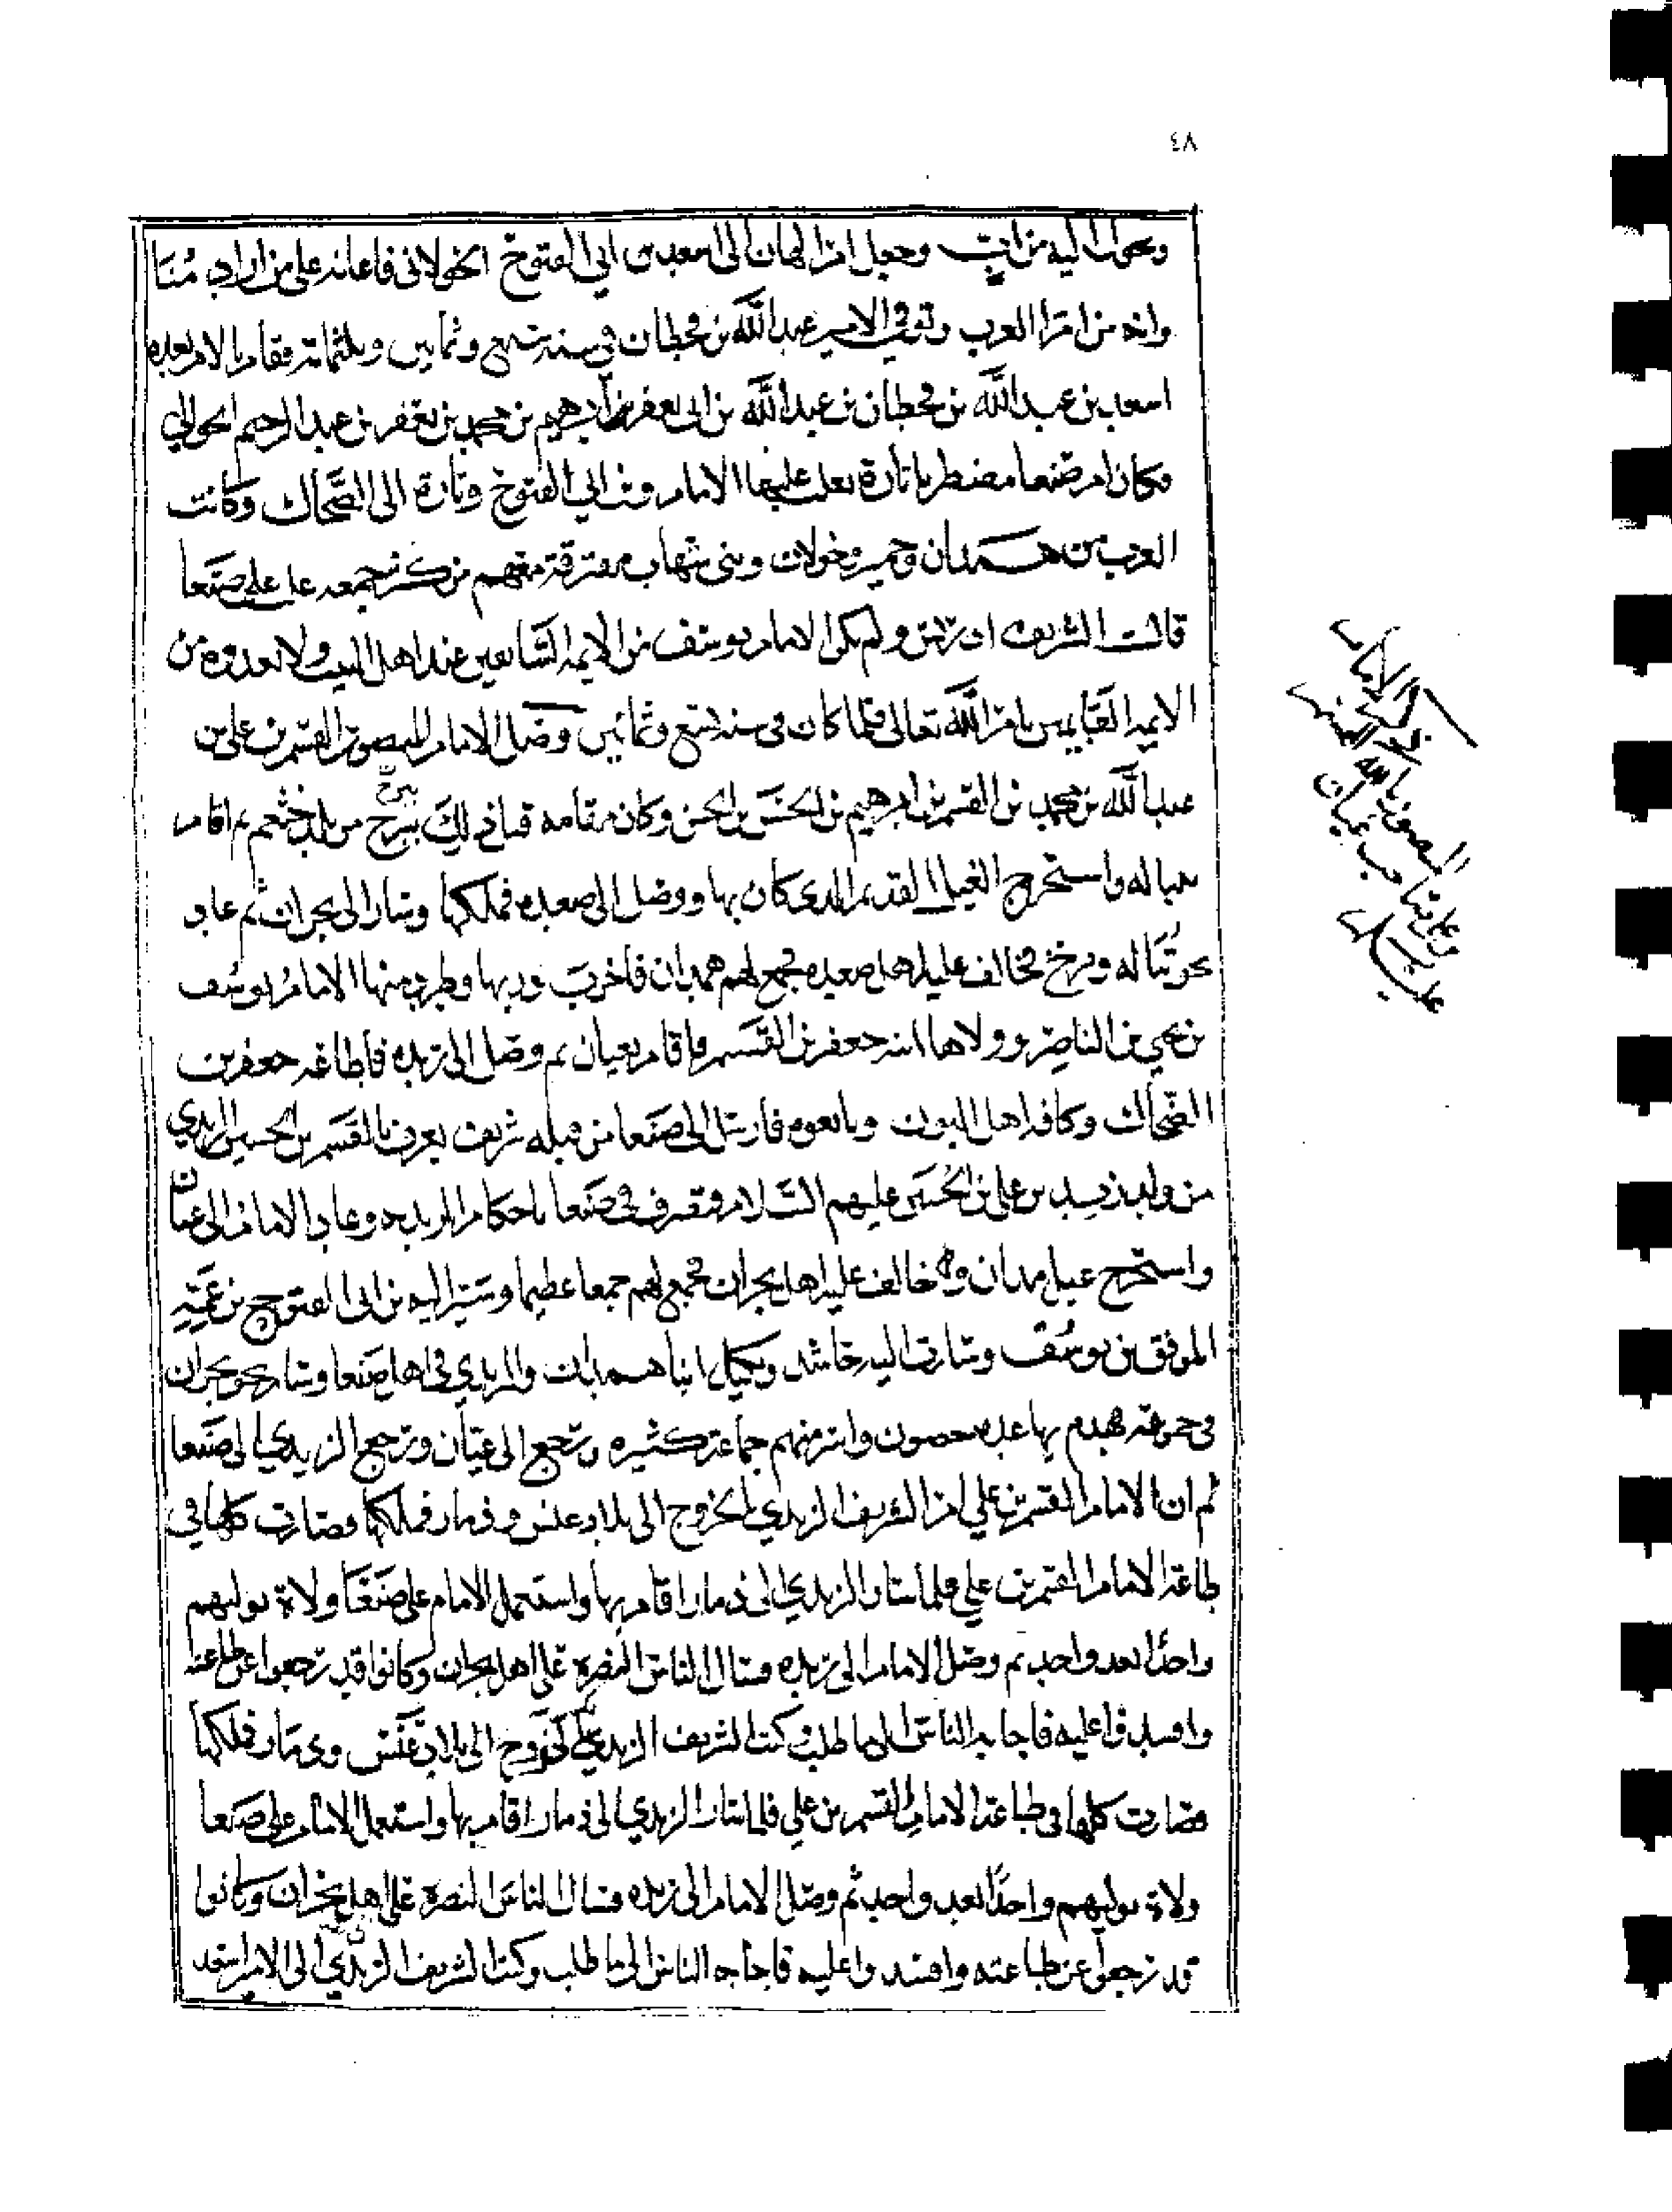 ٤٨
اليه من وجعل امر الهان الى اسعد بن ابي الفتوح الخولاني فاعانه على من اراد
من امرا العرب وتوفي الامير عبد الله بن قحطان في سنه سبع وثمانين وثلثمائة فقام بالامر بعده
اسعد بن عبد الله بن قحطان بن عبد الله بن ابي يعفر بن ابرهيم بن محمد بن يعفر بن عبد الرحيم الحوالي
وكان امر صنعا مضطربا تارة يغلب عليها الامام وبن ابي الفتوح وتارة الى الضحاك وكانت
العرب من همدان وحمير وخولان وبني شهاب مفترقة منهم من كثر جمعه على صنعا
قالت الشريف ادريس ولم يكن الامام يوسف من الايمه السابقين عند اهل البيت ولا يعدوه من
الايمه القايمين بامر الله تعالى فلما كان في سنه تسع وثمانين وصل الامام المنصور القسم بن علي بن
عبد الله بن محمد بن القسم بن ابرهيم بن الحسن بن الحسن وكان مقامه قبل ذلك بترج من بلد خثعم ثم اقام
بتباله واستخرج الغيل القديم الذي كان بها ووصل الى صعده فملكها وسار الى نجران ثم عاد
له وترج فخالف عليه اهل صعده فجمع لهم همدان فاخرب دربها وطرد منها الامام يوسف
بن يحيى بن الناصر وولاها ابنه جعفر بن القسم واقام بعيان ثم وصل الى ريده فاطاعه جعفر بن
الضحاك وكافه اهل البون وبايعوه فارسل الى صنعا من قبله شريف يعرف بالقسم بن الحسين الزيدي
من ولد زيد بن علي بن الحسين عليهم السلام فتصرف في صنعا باحكام الزيديه وعاد الامام الى عيان
واستخرج غيل مدان وخالف عليه اهل نجران فجمع لهم جمعا عظيما وسير اليه بن ابي الفتوح بن عمه
الموفق بن يوسف وسارت اليه حاشد وبكيل ابنا همدان والزيدي في اهل صنعا وسار نحو نجران
في جموعه فهدم بها عده حصون واسر منهم جماعة كثيره ورجع الى عيان ورجع الزيدي الى صنعا
ثم ان الامام القسم بن علي امر الشريف الزيدي بالخروج الى بلاد عنس وذمار فملكها وصارت كلها في
طاعة الامام القسم بن علي فلما سار الزيدي الى ذمار اقام بها واستعمل الامام على صنعا ولاة يوليهم
واحدا بعد واحد ثم وصل الامام الى ريده وسال الناس النصره على اهل نجران وكانوا قد رجعوا عن طاعته
وافسدوا عليه فاجابه الناس الى ما طلب وكتب الشريف الزيدي الخروج الى بلاد عنس وذمار فملكها
وصارت كلها في طاعة الامام القسم بن علي فلما سار الزيدي الى ذمار اقام بها واستعمل الامام على صنعا
ولاة يوليهم واحدا بعد واحد ثم وصل الامام الى ريده وسال الناس النصرة على اهل نجران وكانوا
قد رجعوا عن طاعته وافسدوا عليه فاجابه الناس الى ما طلب وكتب الشريف الزيدي الى الامير اسعد